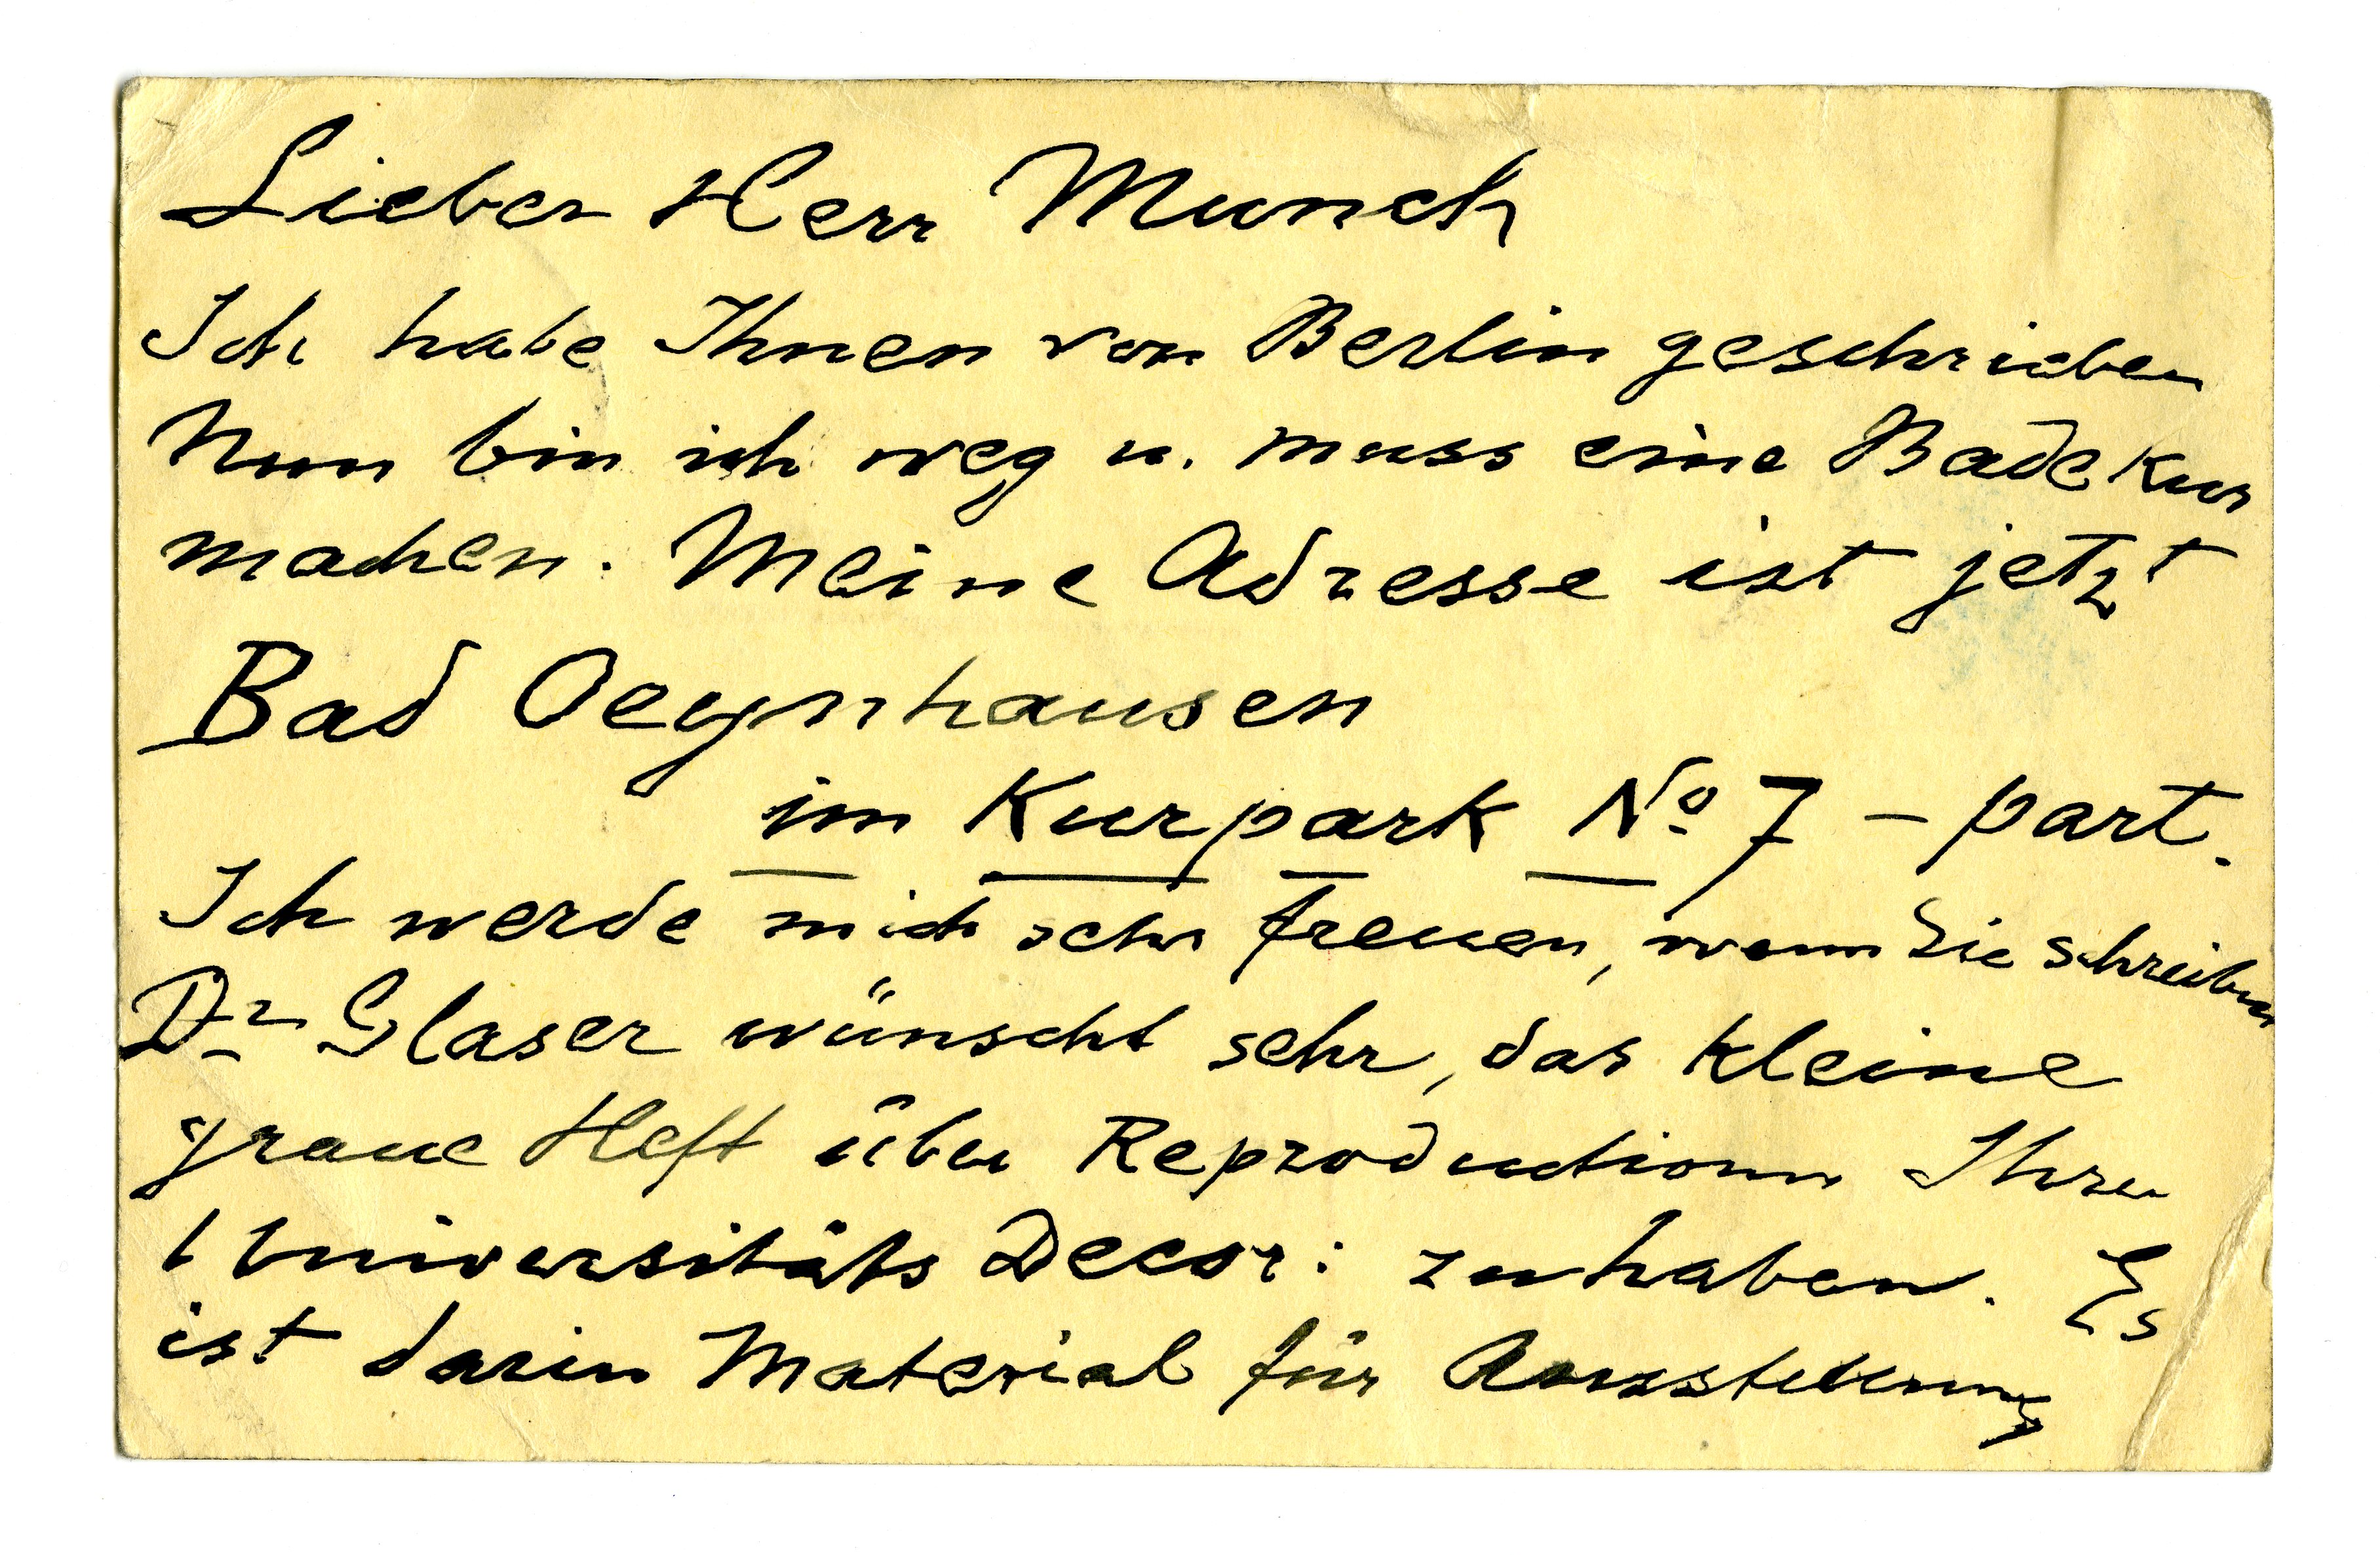 Lieber Herr Munch
Ich habe Ihnen von Berlin geschrieben
Nun bin ich weg u. muss eine Badekur
machen. Meine Adresse ist jetzt
Bad Oeynhausen
im Kurpark No 7 – part.
Ich werde mich sehr freuen, wenn Sie schreiben
Dr Glaser wünscht sehr, das kleine
graue Heft über Reproductionn Ihrer
Universitäts Decor: zu haben. Es
ist darin Material für Ausstellung